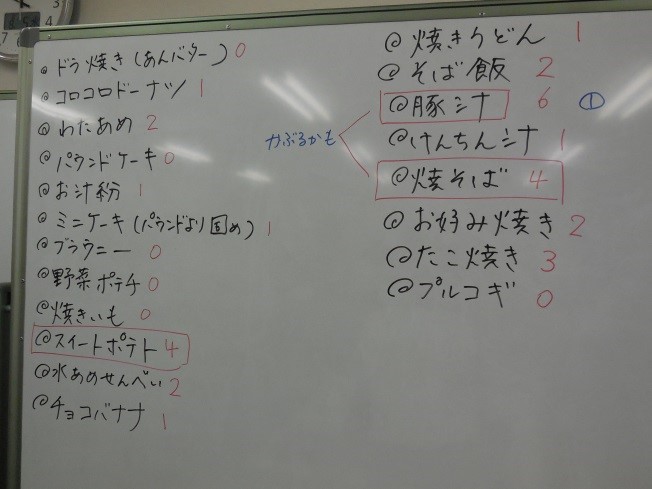 @ ドラ焼き(あんバター) 0
@ コロコロドーナツ 1
@ わたあめ 2
@ パウンドケーキ 0
@ お汁粉 1
@ ミニケーキ(パウンドより固め) 1
@ ブラウニー 0
@ 野菜ポテチ 0
@ 焼きいも 0
@ スイートポテト 4
@ 水あめせんべい 2
@ チョコバナナ 1
@ 焼きうどん 1
@ そば飯 2
@ 豚汁 6 ①
かぶるかも
@ けんちん汁 1
@ 焼そば 4
@ お好み焼き 2
@ たこ焼き 3
@ プルコギ 0